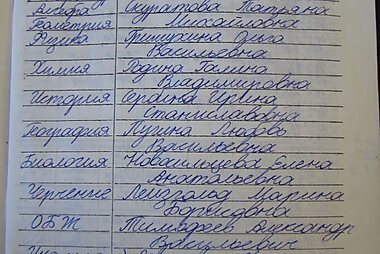 Алгебра Скуратова Татьяна
Геометрия Михайловна
Физика Гришухина Ольга
Васильевна
Химия Родина Галина
Владимировна
История Ирина
Станиславовна
География Пугина Любовь
Васильевна
Биология Новосильцева Елена
Анатольевна
Черчение Лейзгольд Марина
Борисовна
ОБЖ Тимофеев Александр
Васильевич